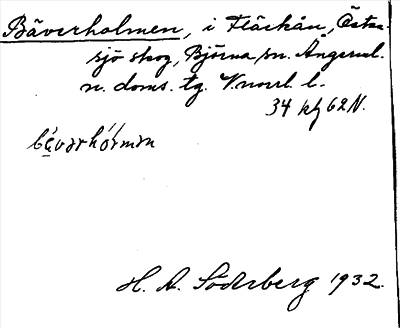 Bäverholmen, i Fläckån, Östra-
sjö skog, Björna sn. Ångerml.
n. doms. tg. V.norrl. l.
34 kbf 62 N.
H. A. Söderberg 1932.